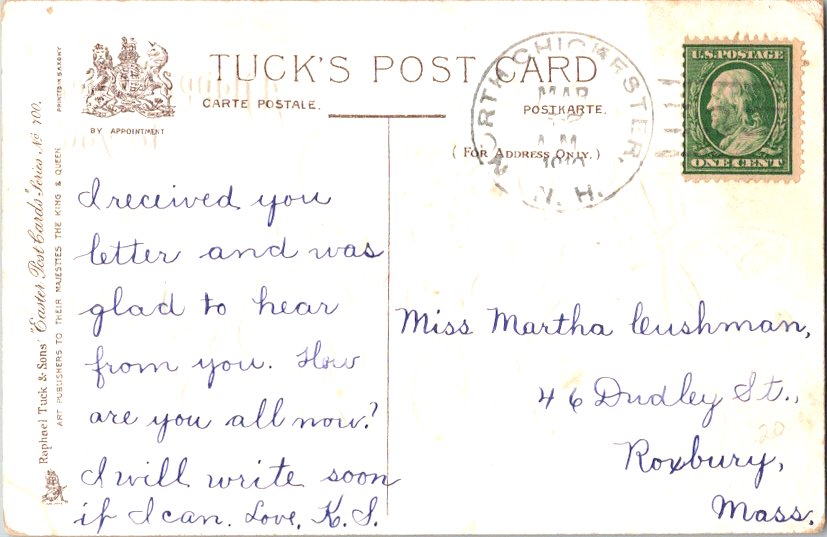 TUCK'S POST CARD
CARTE POSTALE.
POSTKARTE.
(FOR ADDRESS ONLY.)
BY APPOINTMENT
PRINTED IN SAXONY
Raphael Tuck & Sons' "Easter" Post Cards Series No 700.
ART PUBLISHERS TO THEIR MAJESTIES THE KING & QUEEN
NORTH CHICHESTER, N. H.
MAR
A.M.
U.S. POSTAGE
ONE CENT
I received you
letter and was
glad to hear
from you. How
are you all now?
I will write soon
if I can. Love, K. S.
Miss Martha Cushman,
46 Dudley St.,
Roxbury,
Mass.